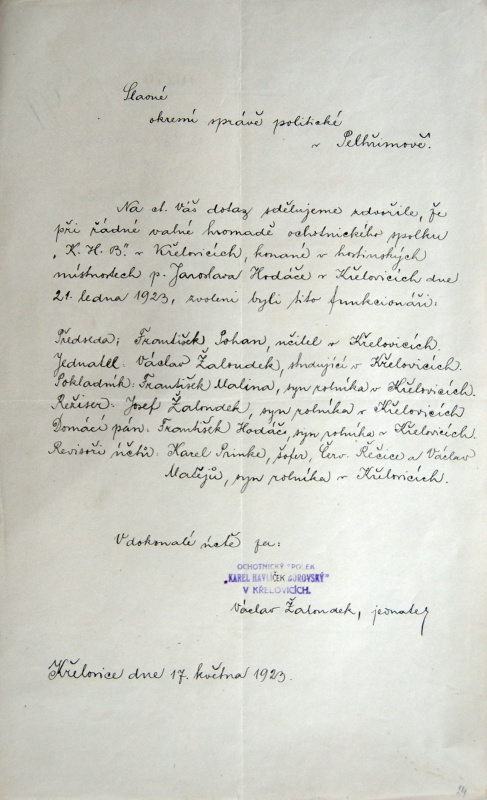 Slavné
okresní správě politické
v Pelhřimově.
Na ct. Váš dotaz sdělujeme zdvořile, že
při řádné valné hromadě ochotnického spolku
„K. H. B." v Křelovicích, konané v hostinských
místnostech p. Jaroslava Hodáče v Křelovicích dne
21. ledna 1923, zvoleni byli tito funkcionáři:
Předseda: František Pohan, učitel v Křelovicích.
Jednatel: Václav Žaloudek, studující v Křelovicích.
Pokladník: František Malina, syn rolníka v Křelovicích.
Režiser: Josef Žaloudek, syn rolníka v Křelovicích
Domácí pán: František Hodáč, syn rolníka v Křelovicích.
Revisoři účtů: Karel Primke, šofer, Červ. Řečice a Václav
Matějů, syn rolníka v Křelovicích.
V dokonalé úctě za:
OCHOTNICKÝ SPOLEK
„KAREL HAVLÍČEK BOROVSKÝ"
V KŘELOVICÍCH.
Václav Žaloudek, jednatel
Křelovice dne 17. května 1923.
24